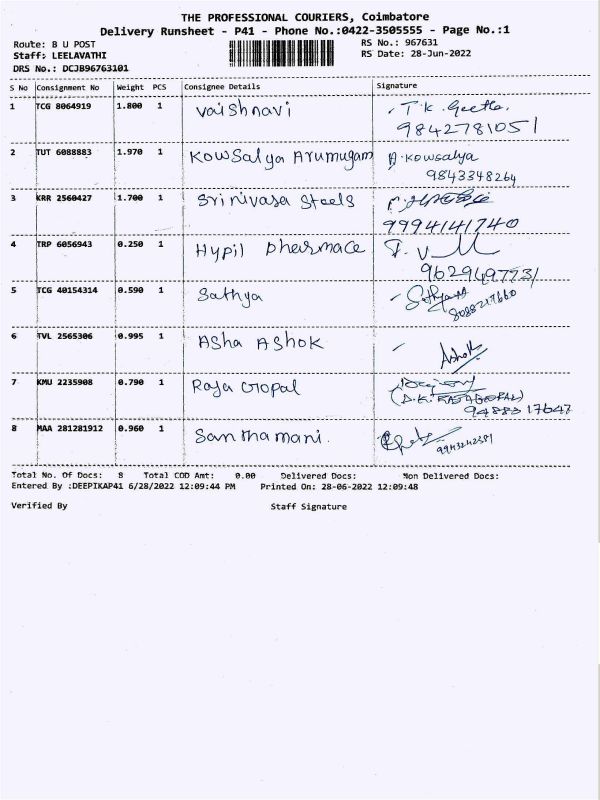 THE PROFESSIONAL COURIERS, Coimbatore
Delivery Runsheet - P41 - Phone No.:0422-3505555 - Page No.:1
Route: B U POST RS No.: 967631
Staff: LEELAVATHI RS Date: 28-Jun-2022
DRS No.: DCJB96763101
S No Consignment No Weight PCS Consignee Details Signature
1 TCG 8064919 1.800 1 Vaishnavi T.K. Geetha.
9842781051
2 TUT 6088883 1.970 1 Kowsalya Arumugam A. Kowsalya
9843348264
3 KRR 2560427 1.700 1 Srinivasa Steels
9994141740
4 TRP 6056943 0.250 1 Hypil Pharmace
9629497731
5 TCG 40154314 0.590 1 Sathya Sathya
8088217660
6 TVL 2565306 0.995 1 Asha Ashok Ashok
7 KMU 2235908 0.790 1 Raja Gopal
(D.K. RAJAGOPAL)
9488317647
8 MAA 281281912 0.960 1 Santhamani.
9943242381
Total No. Of Docs: 8 Total COD Amt: 0.00 Delivered Docs: Non Delivered Docs:
Entered By :DEEPIKAP41 6/28/2022 12:09:44 PM Printed On: 28-06-2022 12:09:48
Verified By Staff Signature